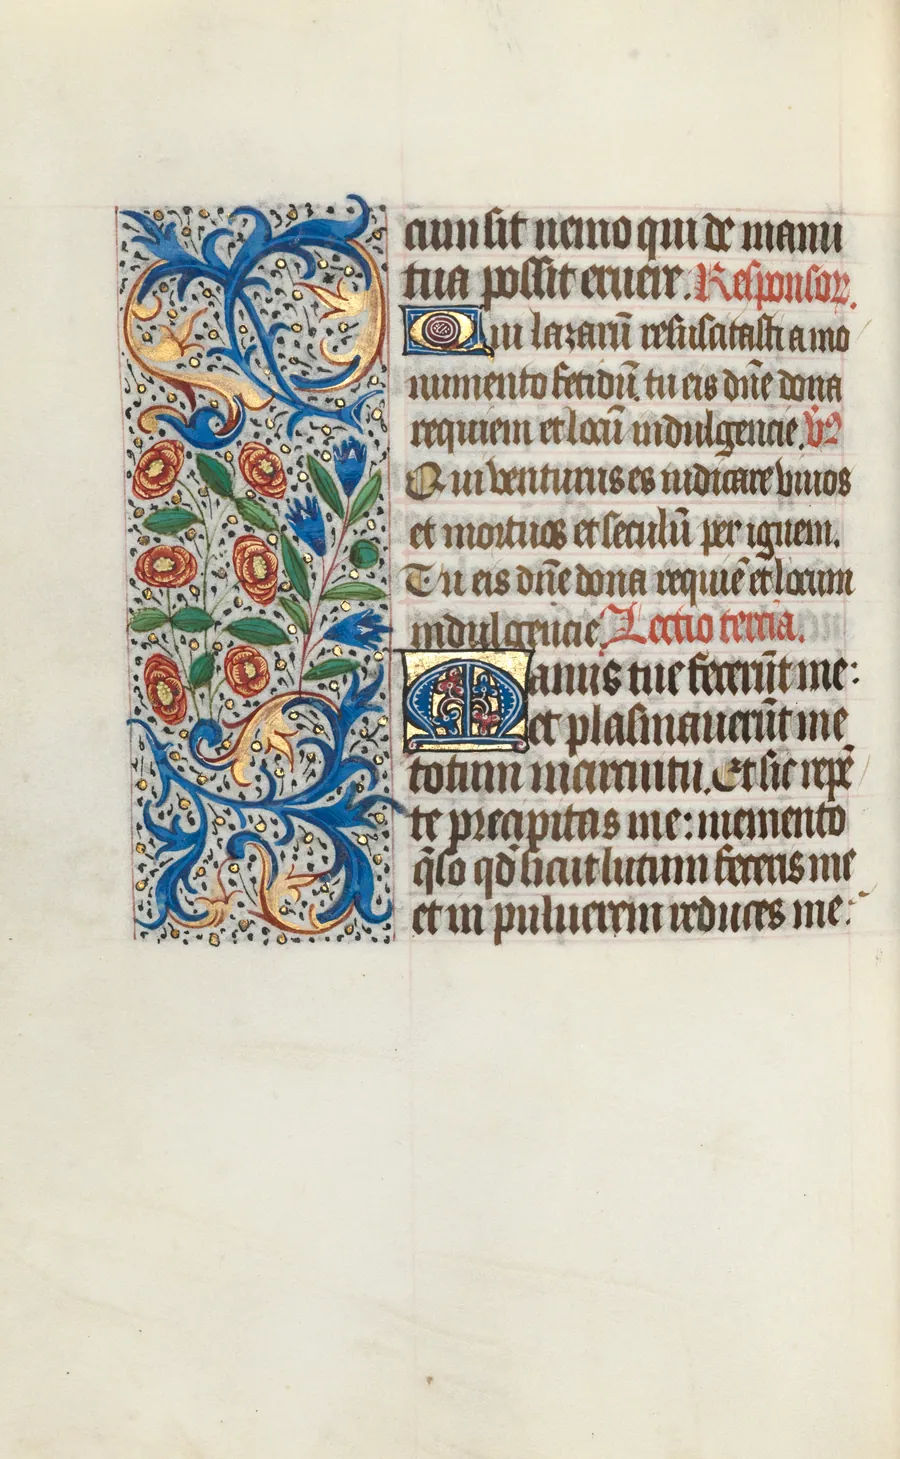 cum sit nemo qui de manu
tua possit eruere. Responsor.
Qui lazarū resuscitasti a mo
numento fetidū. tu eis dn̄e dona
requiem et locū indulgencie. v̄s
Qui venturus es iudicare viuos
et mortuos et seculū per ignem.
Tu eis dn̄e dona requiē et locum
indulgencie Lectio tercia.
Manus tue fecerūt me:
et plasmauerūt me
totum in circuitu. Et sic repē
te precipitas me: memento
q̄so qd̄ sicut lutum feceris me
et in puluerem reduces me: